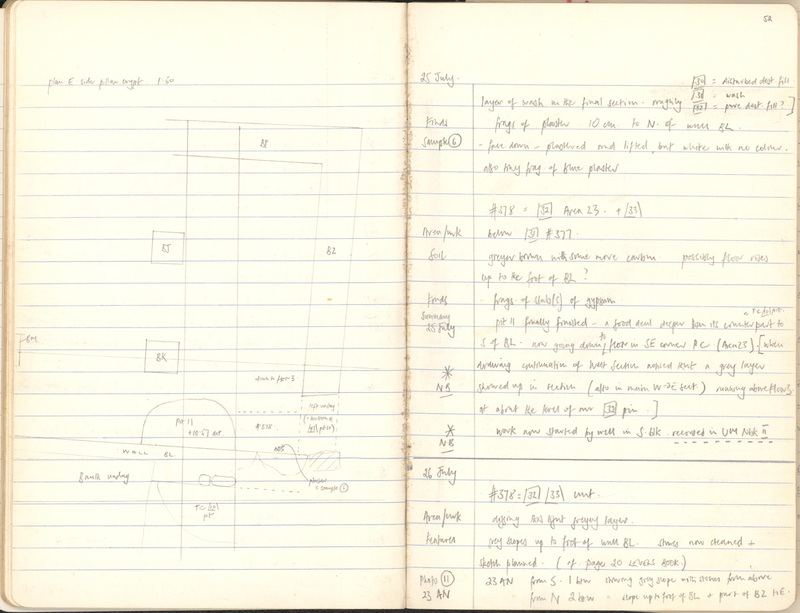 plan E side pillar crypt. 1:50
BB
BJ
BZ
BK
BM
down to floor 3
left unday
Pit 11
+10.57 ASL
#378
WALL BL
ADB
Baulk unday
plaster
= sample ⑥
TC
pit
52
25 July.
|34| = disturbed dest. fill
|31| = wash
= pure dest. fill?
layer of wash in the final section. roughly
Finds frags of plaster 10 cm to N. of wall BL.
Sample ⑥ - face down - plastered and lifted, but white with no colour.
also tiny frag of blue plaster
#378 = |32| Area 23. + |33|
Area/unit below |31| #377.
Soil greyer brown with some more carbon. possibly floor rises
up to the foot of BL?
Finds - frags of slab(s) of gypsum
Summary
25 July pit 11 finally finished - a good deal deeper than its counterpart to
S of BL. now going down to floor in SE corner PC (Area 23) [when
* drawing continuation of West Section noticed that a grey layer
NB showed up in section (also in main W→E sect) running above floor 3
at about the level of our |32| pin.]
* work now started by well in S. blk. recorded in UM Nbk II
NB
26 July
#378 = |32| |33| cont.
Area/unit digging this light greyey layer.
Features grey slopes up to foot of wall BL. stones now cleaned +
sketch planned. (cf. page 20 LEVELS BOOK.)
Photo ⑪ 23 AN from S. 1 b+w showing grey slope with stones from above
23 AN from N 2 b+w - slope up to foot of BL + part of BZ to E.